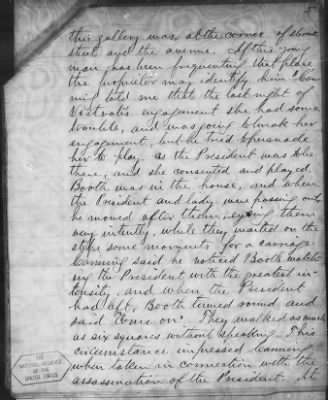 5
this gallery was at the corner of some
street and the avenue. If this young
man has been frequenting that place
the proprietor may identify him. Can-
ning told me that the last night of
Vestvali's engagement she had some
trouble, and was going to break her
engagement, but he tried to persuade
her to play as the President was to be
there, and she consented and played.
Booth was in the house, and when
the President and lady were passing out
he moved after them, eyeing them
very intently, while they waited on the
steps some moments for a carriage.
Canning said he noticed Booth watch-
ing the President with the greatest in-
tensity and when the President
had left, Booth turned round and
said "Come on". They walked as much
as six squares without speaking. This
circumstance impressed Canning
when taken in connection with the
assassination of the President. At
THE
NATIONAL ARCHIVES
OF THE
UNITED STATES